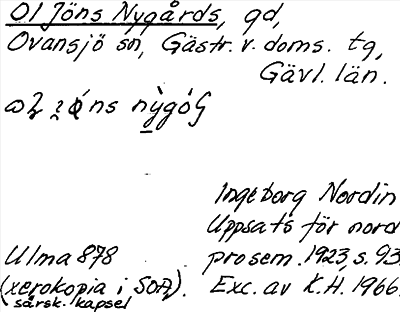 Ol Jöns Nygårds, gd,
Ovansjö sn, Gästr. v. doms. tg,
Gävl. län.
Ingeborg Nordin
Uppsats för nord
prosem. 1923, s. 93.
Exc. av K.H. 1966.
Ulma 878
(xerokopia i SOA).
särsk. kapsel